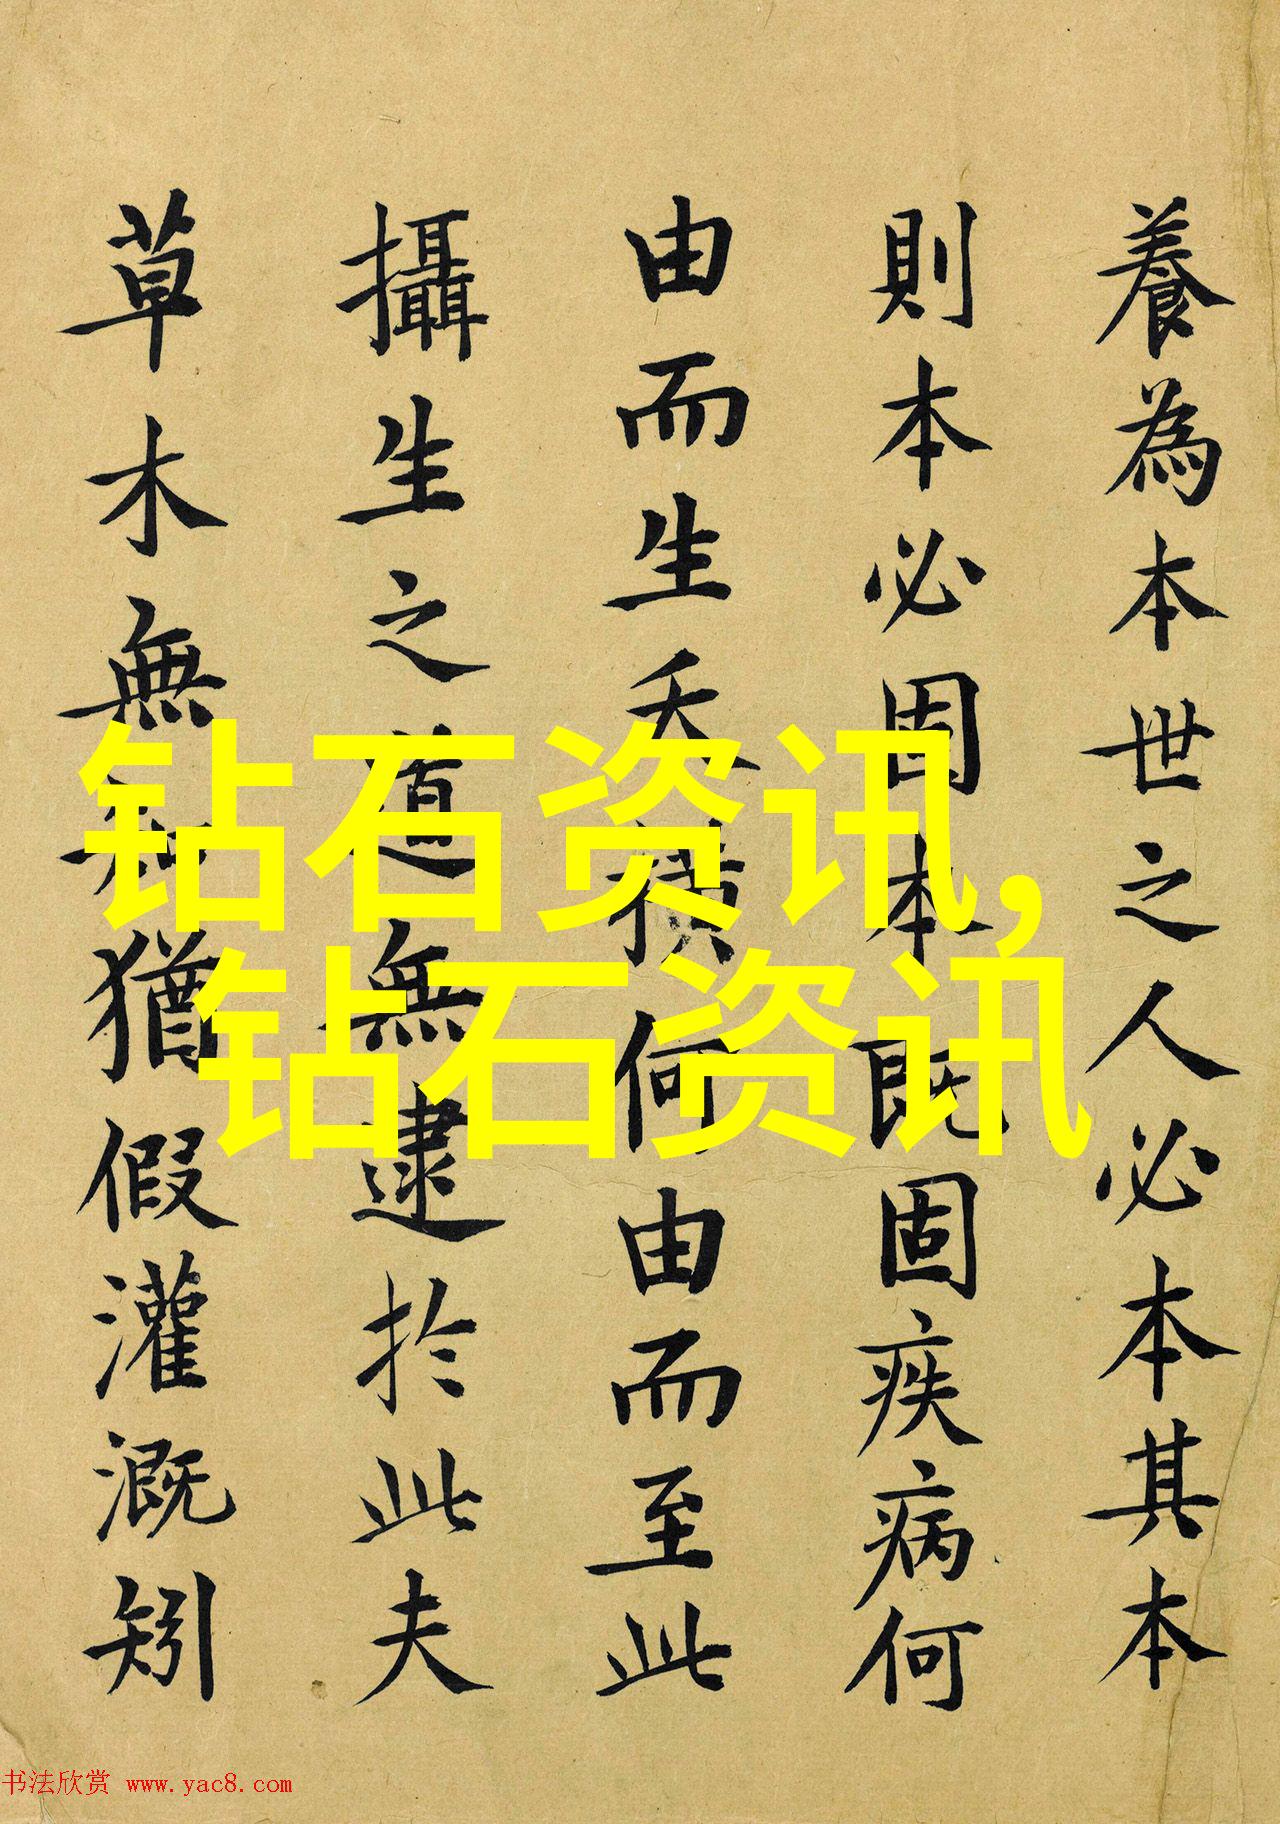 養為本世之人必本其本
則本必固本既固疾病何
由而生夭橫何由而至此
攝生之道無逮於此夫
草木無知猶假灌溉矧
钻石资讯,
钻石资讯
书法欣赏 www.yac8.com